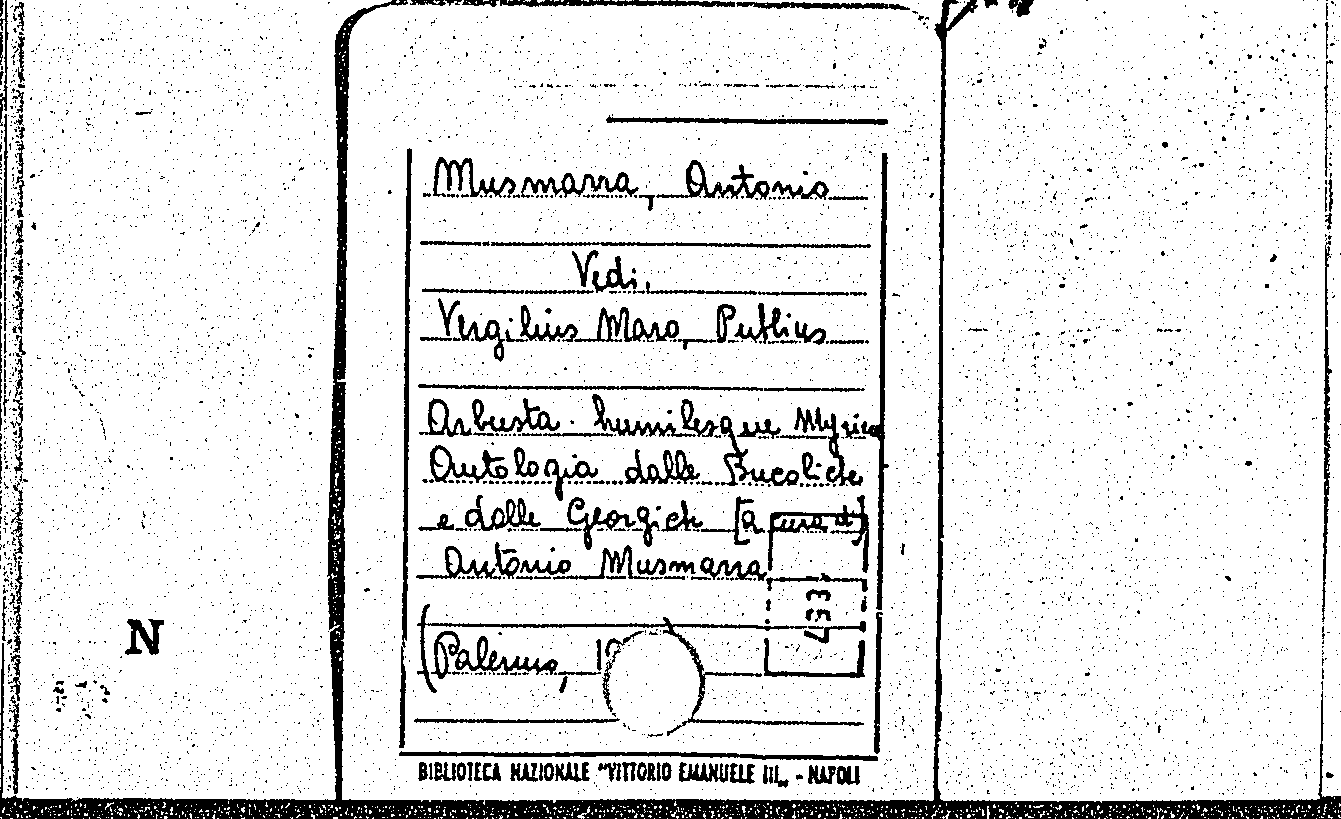 Musmarra, Antonio
Vedi.
Vergilius Maro, Publius
Arbusta humilesque Myricae
Antologia dalle Bucoliche
e dalle Georgich [a cura di]
Antonio Musmarra
(Palermo,
N
BIBLIOTECA NAZIONALE "VITTORIO EMANUELE III„ - NAPOLI